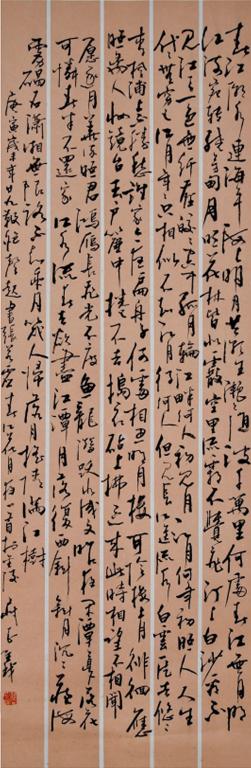 春江潮水連海平海上明月共潮生灧灧隨波千万里何處春江无月明
江流宛轉繞芳甸月照花林皆似霰空里流霜不覺飛汀上白沙看不
見江天一色无纤塵皎皎空中孤月輪江畔何人初見月江月何年初照人人生
代代无窮已江月年年只相似不知江月待何人但見長江送流水白雲一片去悠悠
青楓浦上不勝愁誰家今夜扁舟子何處相思明月樓可憐樓上月徘徊應
照离人妝鏡台玉户簾中捲不去搗衣砧上拂還來此時相望不相聞
愿逐月華流照君鴻雁長飛光不度魚龍潛躍水成文昨夜閑潭夢落花
可憐春半不還家江水流春去欲盡江潭月落復西斜斜月沉沉藏海
霧碣石瀟湘无限路不知乘月幾人歸落月搖情满江樹
庚寅歲書張若虚春江花月夜一首